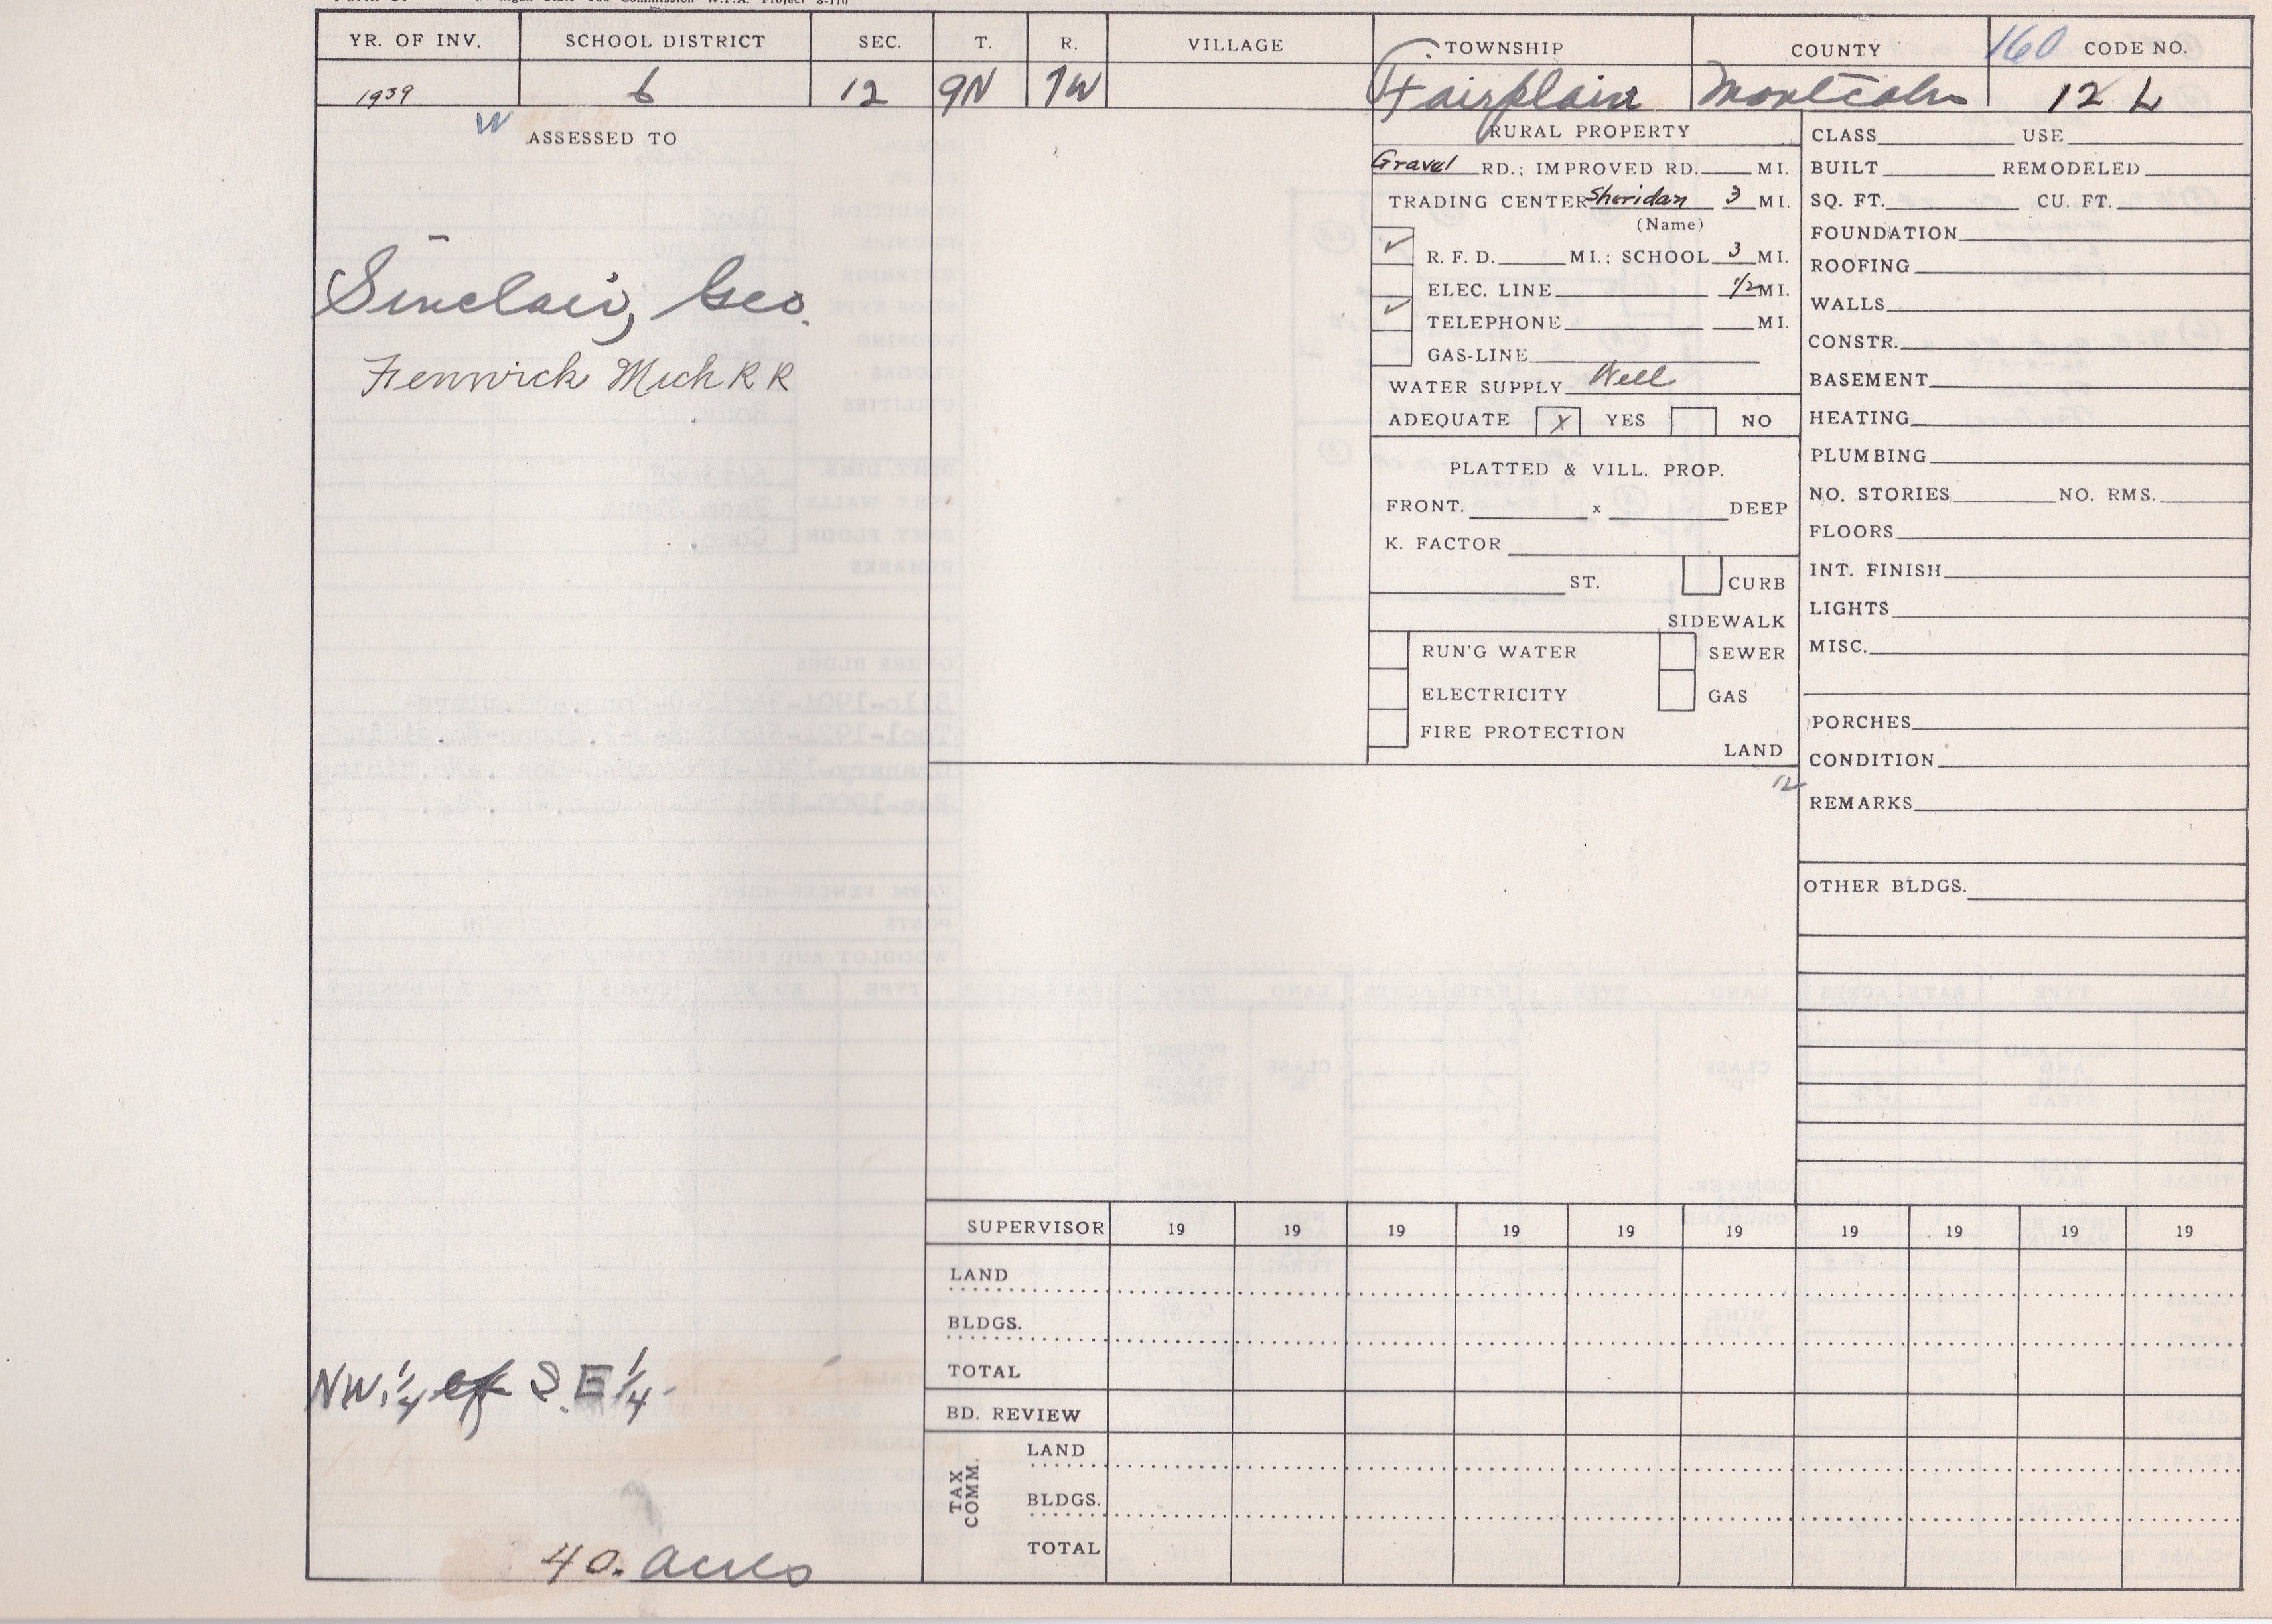 igan State Tax Commission W.P.A. Project S-170
YR. OF INV. SCHOOL DISTRICT SEC. T. R. VILLAGE TOWNSHIP COUNTY 160 CODE NO.
1939 6 12 9N 7W Fairplain Montcalm 12 L
W
ASSESSED TO
Sinclair, Geo.
Fenwick Mich R R
NW 1/4 of S.E 1/4
40. acres
RURAL PROPERTY
Gravel RD.; IMPROVED RD. MI.
TRADING CENTER Sheridan 3 MI.
(Name)
✓ R. F. D. MI.; SCHOOL 3 MI.
ELEC. LINE 1/2 MI.
✓ TELEPHONE MI.
GAS-LINE
WATER SUPPLY Well
ADEQUATE X YES NO
PLATTED & VILL. PROP.
FRONT. x DEEP
K. FACTOR
ST. CURB
SIDEWALK
RUN'G WATER SEWER
ELECTRICITY GAS
FIRE PROTECTION
LAND
12
CLASS USE
BUILT REMODELED
SQ. FT. CU. FT.
FOUNDATION
ROOFING
WALLS
CONSTR.
BASEMENT
HEATING
PLUMBING
NO. STORIES NO. RMS.
FLOORS
INT. FINISH
LIGHTS
MISC.
PORCHES
CONDITION
REMARKS
OTHER BLDGS.
SUPERVISOR 19 19 19 19 19 19 19 19 19 19
LAND
BLDGS.
TOTAL
BD. REVIEW
TAX COMM.
LAND
BLDGS.
TOTAL